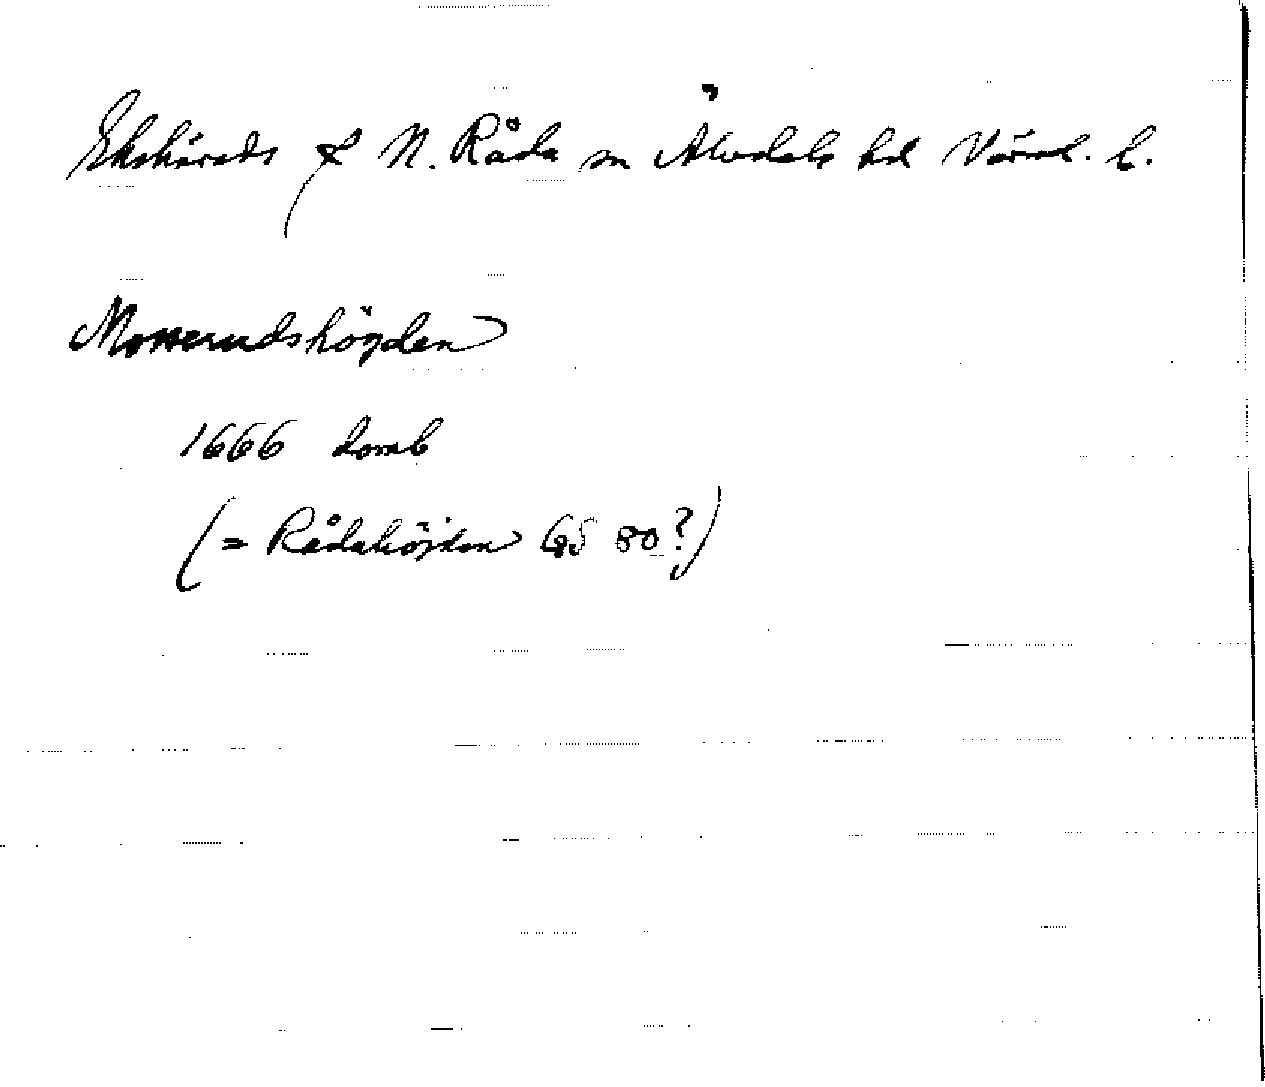 Ekshärads & N. Råda sn Älvdals hd Värml. l.
Mosserudshöjden
1666 domb
(= Rådahöjden GS 80?)